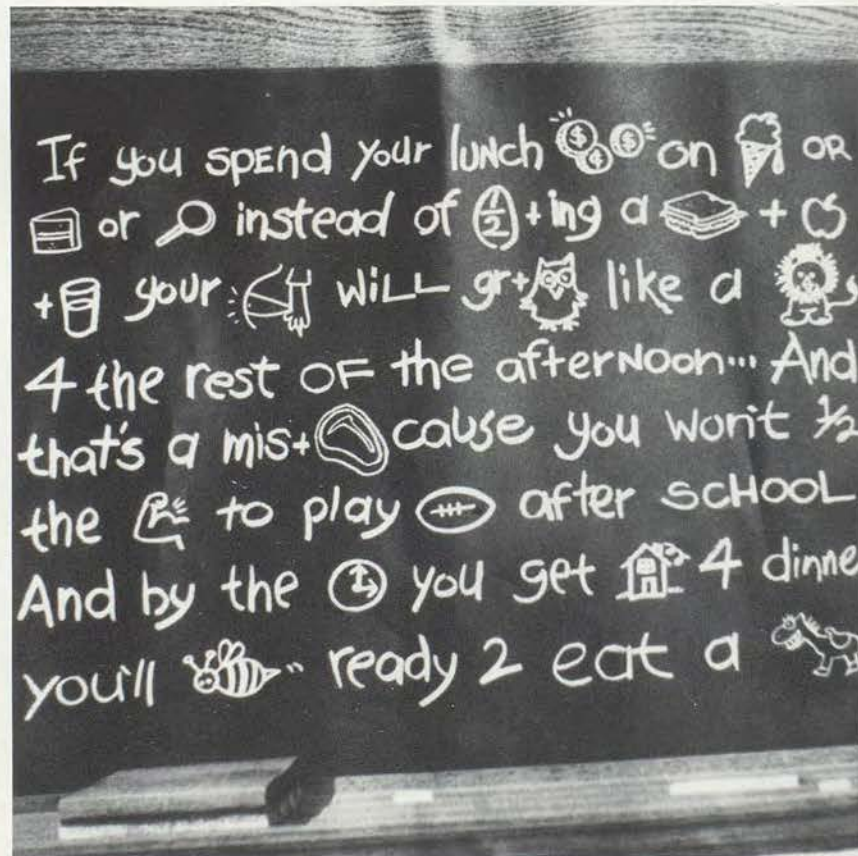 If you spend your lunch on OR
or instead of 1/2 + ing a +
+ your will gr+ like a
4 the rest of the afternoon... And
that's a mis+ cause you won't 1/2
the to play after SCHOOL
And by the you get 4 dinne
you'll ready 2 eat a